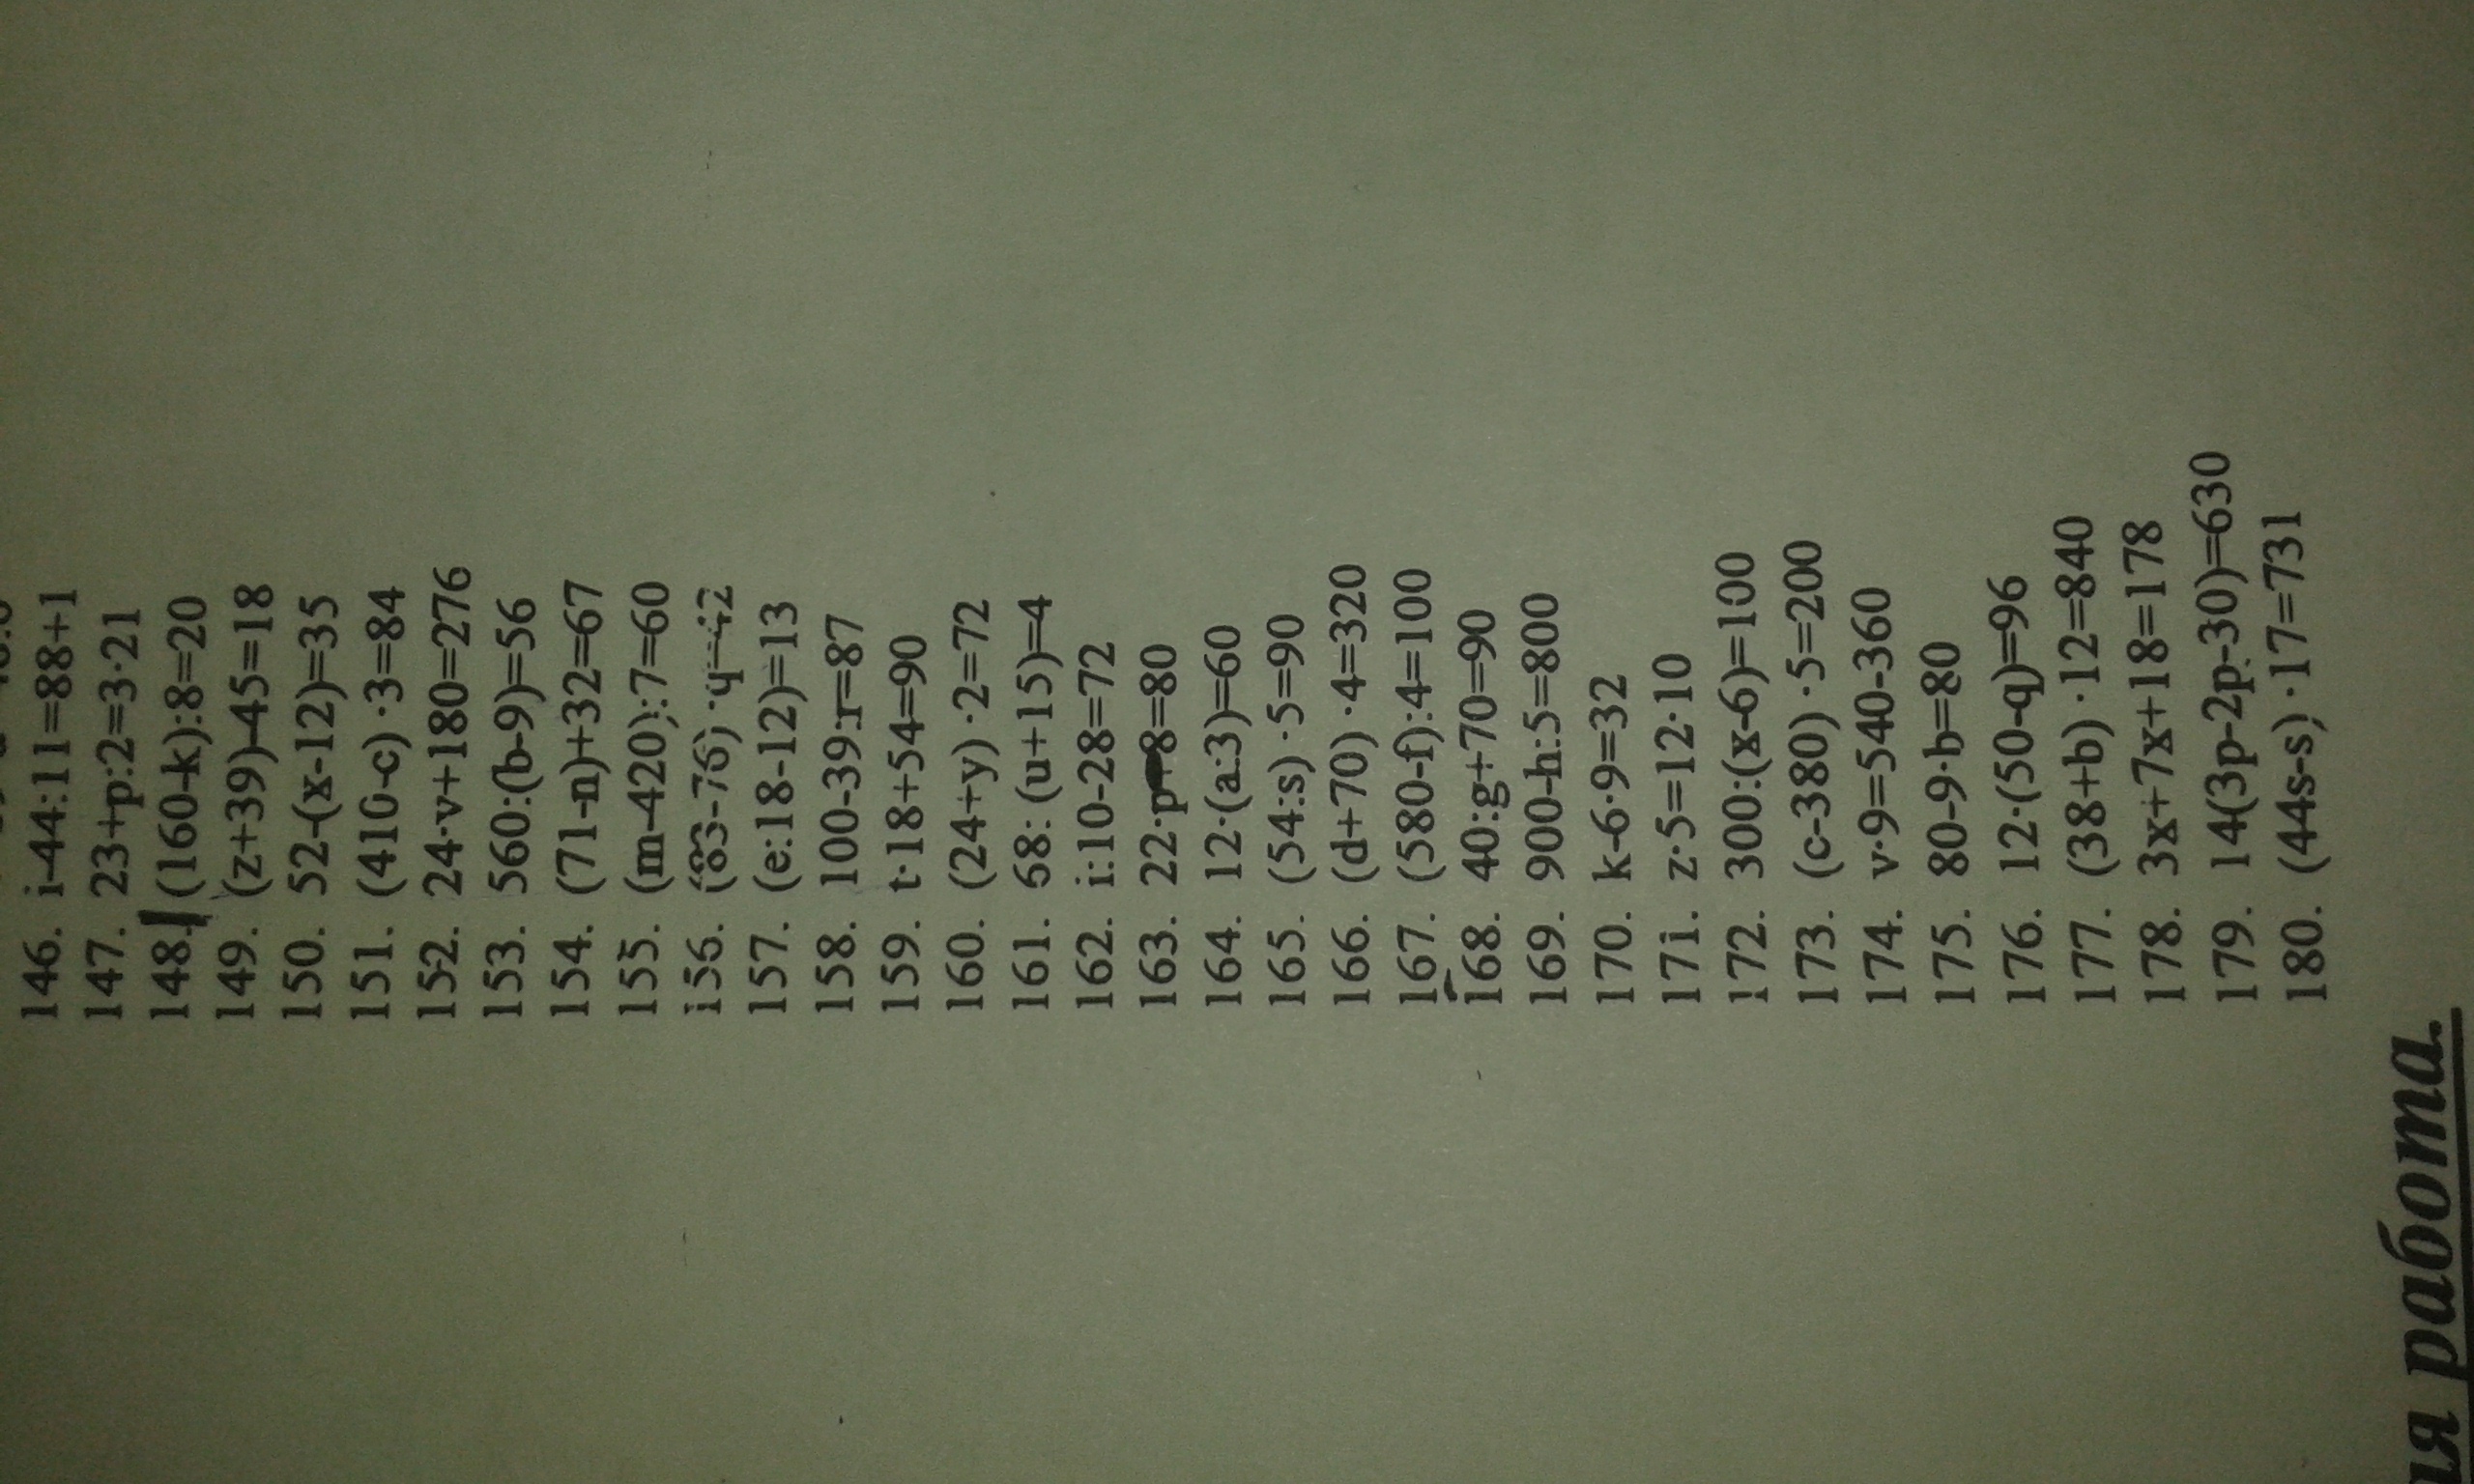 146. i-44:11=88+1
147. 23+p:2=3·21
148. (160-k):8=20
149. (z+39)-45=18
150. 52-(x-12)=35
151. (410-c) ·3=84
152. 24·v+180=276
153. 560:(b-9)=56
154. (71-n)+32=67
155. (m-420):7=60
156. (83-76) ·y=42
157. (e:18-12)=13
158. 100-39:r=87
159. t·18+54=90
160. (24+y) ·2=72
161. 68: (u+15)=4
162. i:10-28=72
163. 22·p-8=80
164. 12·(a:3)=60
165. (54:s) ·5=90
166. (d+70) ·4=320
167. (580-f):4=100
168. 40:g+70=90
169. 900-h:5=800
170. k-6·9=32
171. z·5=12·10
172. 300:(x-6)=100
173. (c-380) ·5=200
174. v·9=540-360
175. 80-9·b=80
176. 12·(50-q)=96
177. (38+b) ·12=840
178. 3x+7x+18=178
179. 14(3p-2p-30)=630
180. (44s-s) ·17=731
работа.